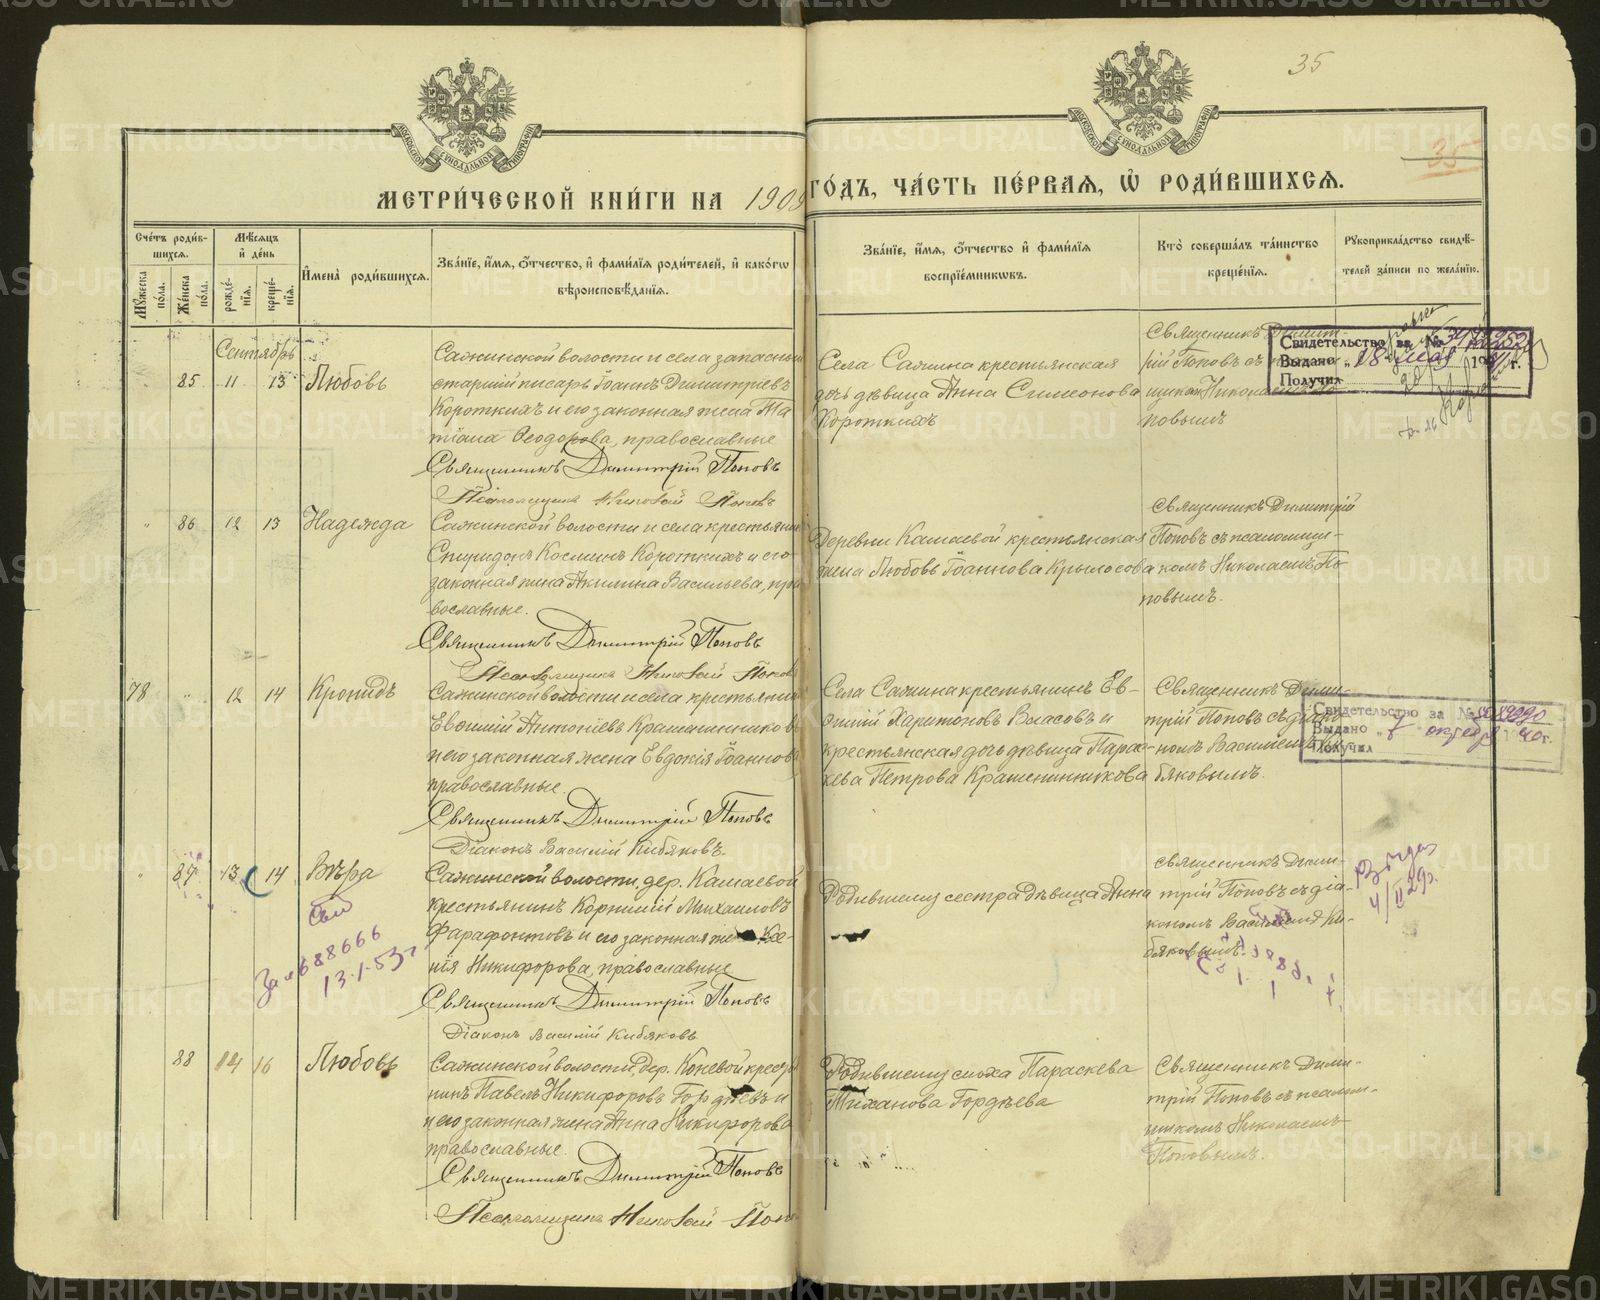 35
35
МОСКОВСКОЙ СѴНОДАЛЬНОЙ ТИПОГРАФІИ
МОСКОВСКОЙ СѴНОДАЛЬНОЙ ТИПОГРАФІИ
МЕТРИ́ЧЕСКОЙ КНИ́ГИ НА 1909 ГО́ДЪ, ЧА́СТЬ ПЕ́РВАЯ, Ѡ РОДИ́ВШИХСЯ.
Сче́тъ роди́вшихся.
Му́жеска по́ла.
Же́нска по́ла.
Мѣ́сяцъ и҆ де́нь
рожде́нїя.
креще́нїя.
И҆мена̀ роди́вшихся.
Зва́нїе, и҆́мя, ѻ҆́тчество, и҆ фами́лїя роди́телей, и҆ како́гѡ
вѣроисповѣ́данїя.
Зва́нїе, и҆́мя, ѻ҆́тчество и҆ фами́лїя
воспрїе́мниковъ.
Кто̀ соверша́лъ та́инство
креще́нїя.
Рꙋкоприкла́дство свидѣ́-
телей за́писи по жела́нїю.
Сентябрь
85 11 13 Любовь
Сажинской волости и села запасный
старшій писарь Іоаннъ Димитріевъ
Короткихъ и его законная жена Та
тіана Ѳеодорова, православные
Священникъ Димитрій Поповъ
Псаломщикъ Николай Поповъ
Села Сажина крестьянская
дочь дѣвица Анна Симеонова
Короткихъ
Священникъ Димит-
рій Поповъ съ псалом-
щикомъ Николаемъ По
повымъ
Свидетельство за №
Выдано 18 мая 19 г.
Получил
" 86 12 13 Надежда
Сажинской волости и села крестьянинъ
Спиридонъ Косминъ Короткихъ и его
законная жена Акилина Васильева, пра
вославные.
Священникъ Димитрій Поповъ
Псаломщикъ Николай Поповъ
Деревни Камаевой крестьянская
жена Любовь Іоаннова Крылосова
Священникъ Димитрій
Поповъ съ псаломщи-
комъ Николаемъ По
повымъ.
78 " 12 14 Кронидъ
Сажинской волости и села крестьянинъ
Евѳимій Антоніевъ Крашенинниковъ
и его законная жена Евдокія Іоаннова
православные.
Священникъ Димитрій Поповъ
Діаконъ Василій Кибяковъ.
Села Сажина крестьянинъ Ев-
ѳимій Харитоновъ Власовъ и
крестьянская дочь дѣвица Парас-
кева Петрова Крашенинникова
Священникъ Дими-
трій Поповъ съ діако
номъ Василіемъ Ки
бяковымъ.
Свидетельство за №
Выдано " 7 октября 1940г.
Получил
" 87 13 14 Вѣра
Сажинской волости, дер. Камаевой
крестьянинъ Корнилій Михаиловъ
Фарафонтовъ и его законная жена Ксе-
нія Никифорова, православные
Священникъ Димитрій Поповъ
Діаконъ Василій Кибяковъ
Родившемуся сестра дѣвица Анна
Священникъ Дими-
трій Поповъ съ діа-
кономъ Василіемъ Ки-
бяковымъ.
За №688666
13-1-53 г.
4/II 29г.
88 14 16 Любовь
Сажинской волости, дер. Коневой крестья
нинъ Павелъ Никифоровъ Гордѣевъ и
его законная жена Анна Никифорова
православные.
Священникъ Димитрій Поповъ
Псаломщикъ Николай Попо
Родившемуся сноха Параскева
Тиханова Гордѣева
Священникъ Дими-
трій Поповъ съ псалом-
щикомъ Николаемъ
Поповымъ.
METRIKI.GASO-URAL.RU